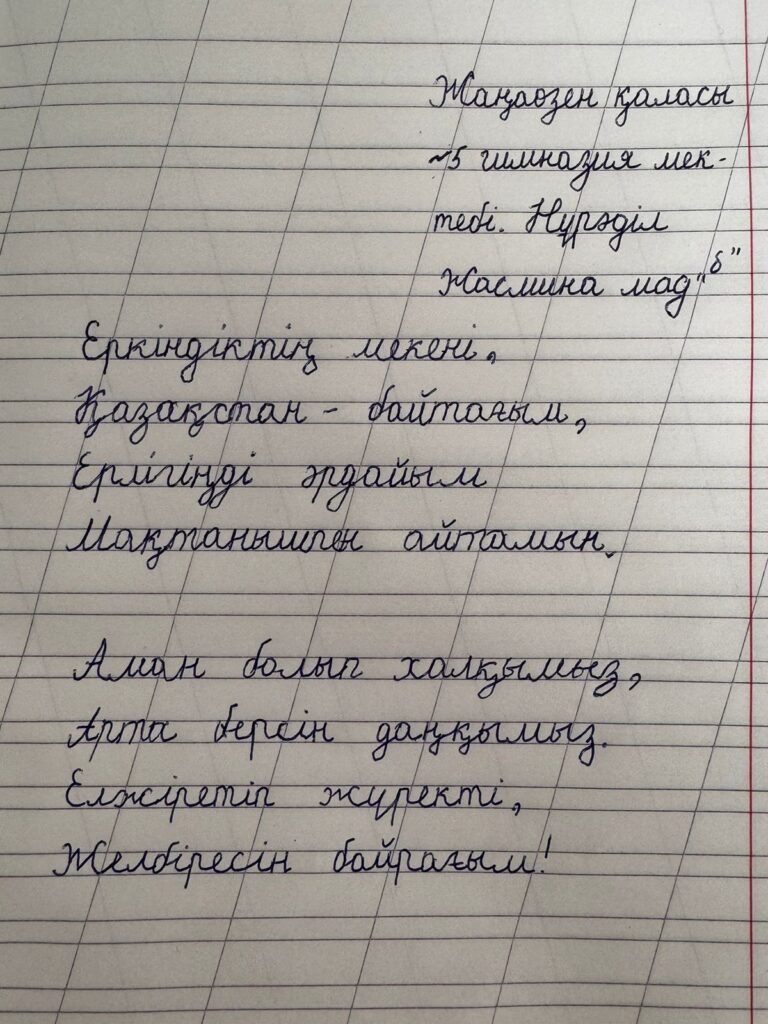 Жаңаөзен қаласы
№5 гимназия мек-
тебі. Нұрәділ
Жасмина мад "б"
Еркіндіктің мекені,
Қазақстан - байтағым,
Ерлігіңді әрдайым
Мақтанышпен айтамын.
Аман болып халқымыз,
Арта берсін даңқымыз.
Елжіретіп жүректі,
Желбіресін байрағым!